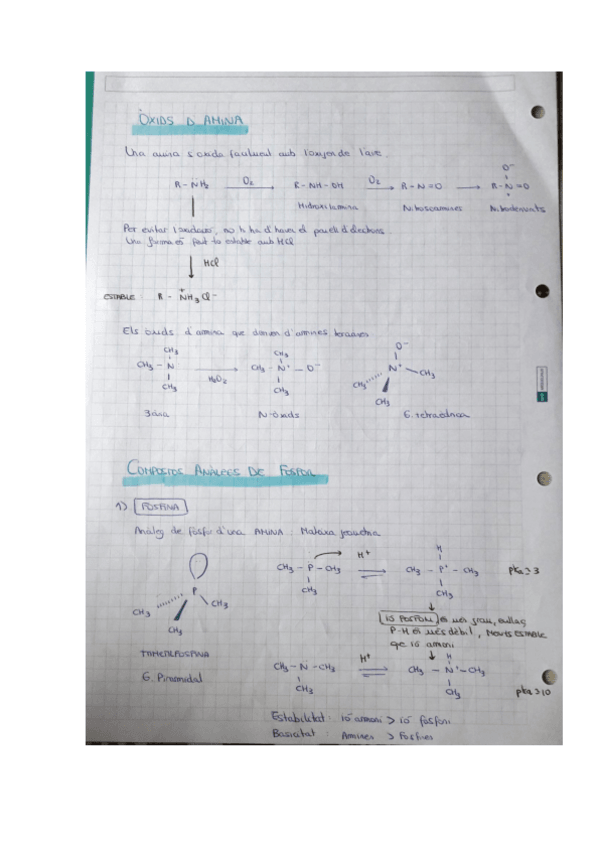 ÒXIDS D AMINA
Una amina s'oxida facilment amb l'oxigen de l'aire.
O⁻
R-NH₂ O₂ R-NH-OH O₂ R-N=O R-N=O
+
Hidroxilamina Nitrosoamines Nitroderivats
Per evitar l'oxidació, no hi ha d'haver el parell d'electrons
Una forma és fent-la estable amb HCl
HCl
ESTABLE: R-NH₃Cl⁻
+
Els òxids d'amina que donen d'amines terciàries
CH₃ CH₃ O⁻
CH₃-N CH₃-N⁺-O⁻ N⁺-CH₃
H₂O₂ CH₃
CH₃ CH₃ CH₃
3ària N-òxids G. tetraèdrica
COMPOSTOS ANÀLEGS DE FÒSFOR
1) FOSFINA
Anàleg de fòsfor d'una AMINA: Mateixa geometria
H
CH₃-P-CH₃ H⁺ CH₃-P⁺-CH₃ pka≥3
CH₃ CH₃
P
CH₃ CH₃
CH₃
IÓ FOSFONI és més gran, enllaç
P-H és més dèbil, menys estable
que ió amoni
TRIMETILFOSFINA
G. Piramidal
H
CH₃-N-CH₃ H⁺ CH₃-N⁺-CH₃
CH₃ CH₃ pka≥10
Estabilitat: ió amoni > ió fosfoni
Basicitat: Amines > Fosfines